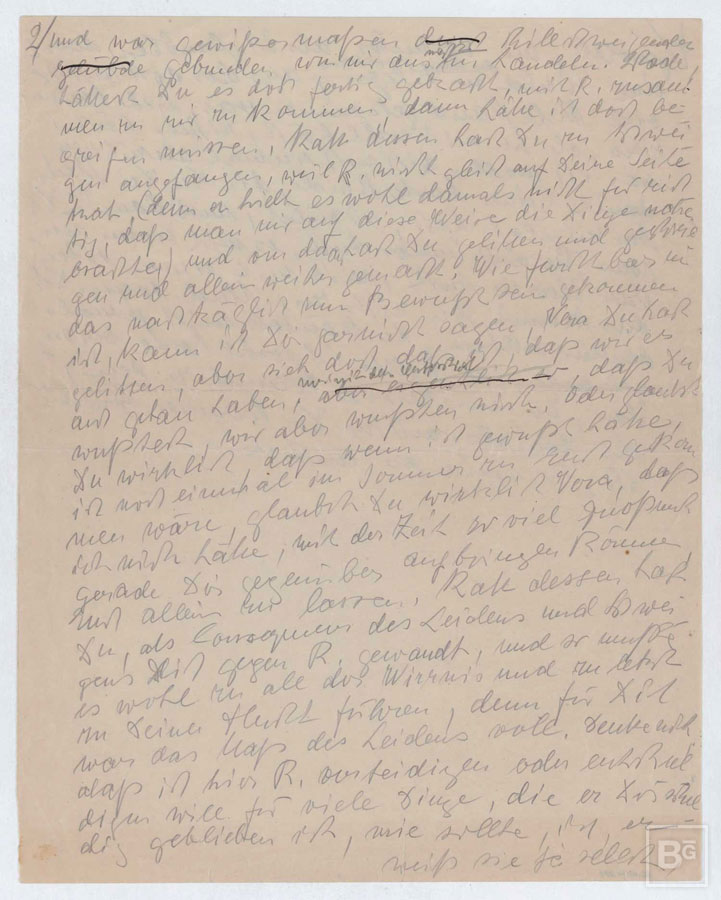 2/ und war gewissermaßen durch Stillschweigenden
gebunden von mir aus zu handeln.
hättest Du es dort fertig gebracht, mit R. zusam-
men zu mir zu kommen, dann hätte ich doch be-
greifen müssen. Statt dessen hast Du zu schwei-
gen angefangen, weil R. nicht gleich auf Deine Seite
trat, (denn er hielt es wohl damals nicht für rich-
tig, daß man mir auf diese Weise die Dinge nahe
brächte) und von da hast Du gelitten und geschwie-
gen und allein weiter gemacht. Wie furchtbar mir
das nachträglich zum Bewußtsein gekommen
ist, kann ich Dir garnicht sagen, Vera Du hast
gelitten, aber sieh doch, daß wir es
auch getan haben, nur mit dem Unterschied, daß Du
wußtest, wir aber wußten nicht. Oder glaubst
Du wirklich, daß wenn ich gewußt hätte,
ich noch einmal im Sommer zu Euch gekom-
men wäre, glaubst Du wirklich Vera, daß
ich nicht hätte, mit der Zeit so viel Großmut
gerade Dir gegenüber aufbringen können
Euch allein zu lassen. Statt dessen hast
Du, als Consequenz des Leidens und Schwei-
gens Dich gegen R. gewandt, und so mußte
es wohl zu all der Wirrnis und zuletzt
zu Deiner Flucht führen, denn für Dich
war das Maß des Leidens voll. Denke nicht
daß ich hier R. verteidigen oder entschul-
digen will für viele Dinge, die er Dir schul-
dig geblieben ist, wie sollte ich, er
weiß sie ja selbst
BG